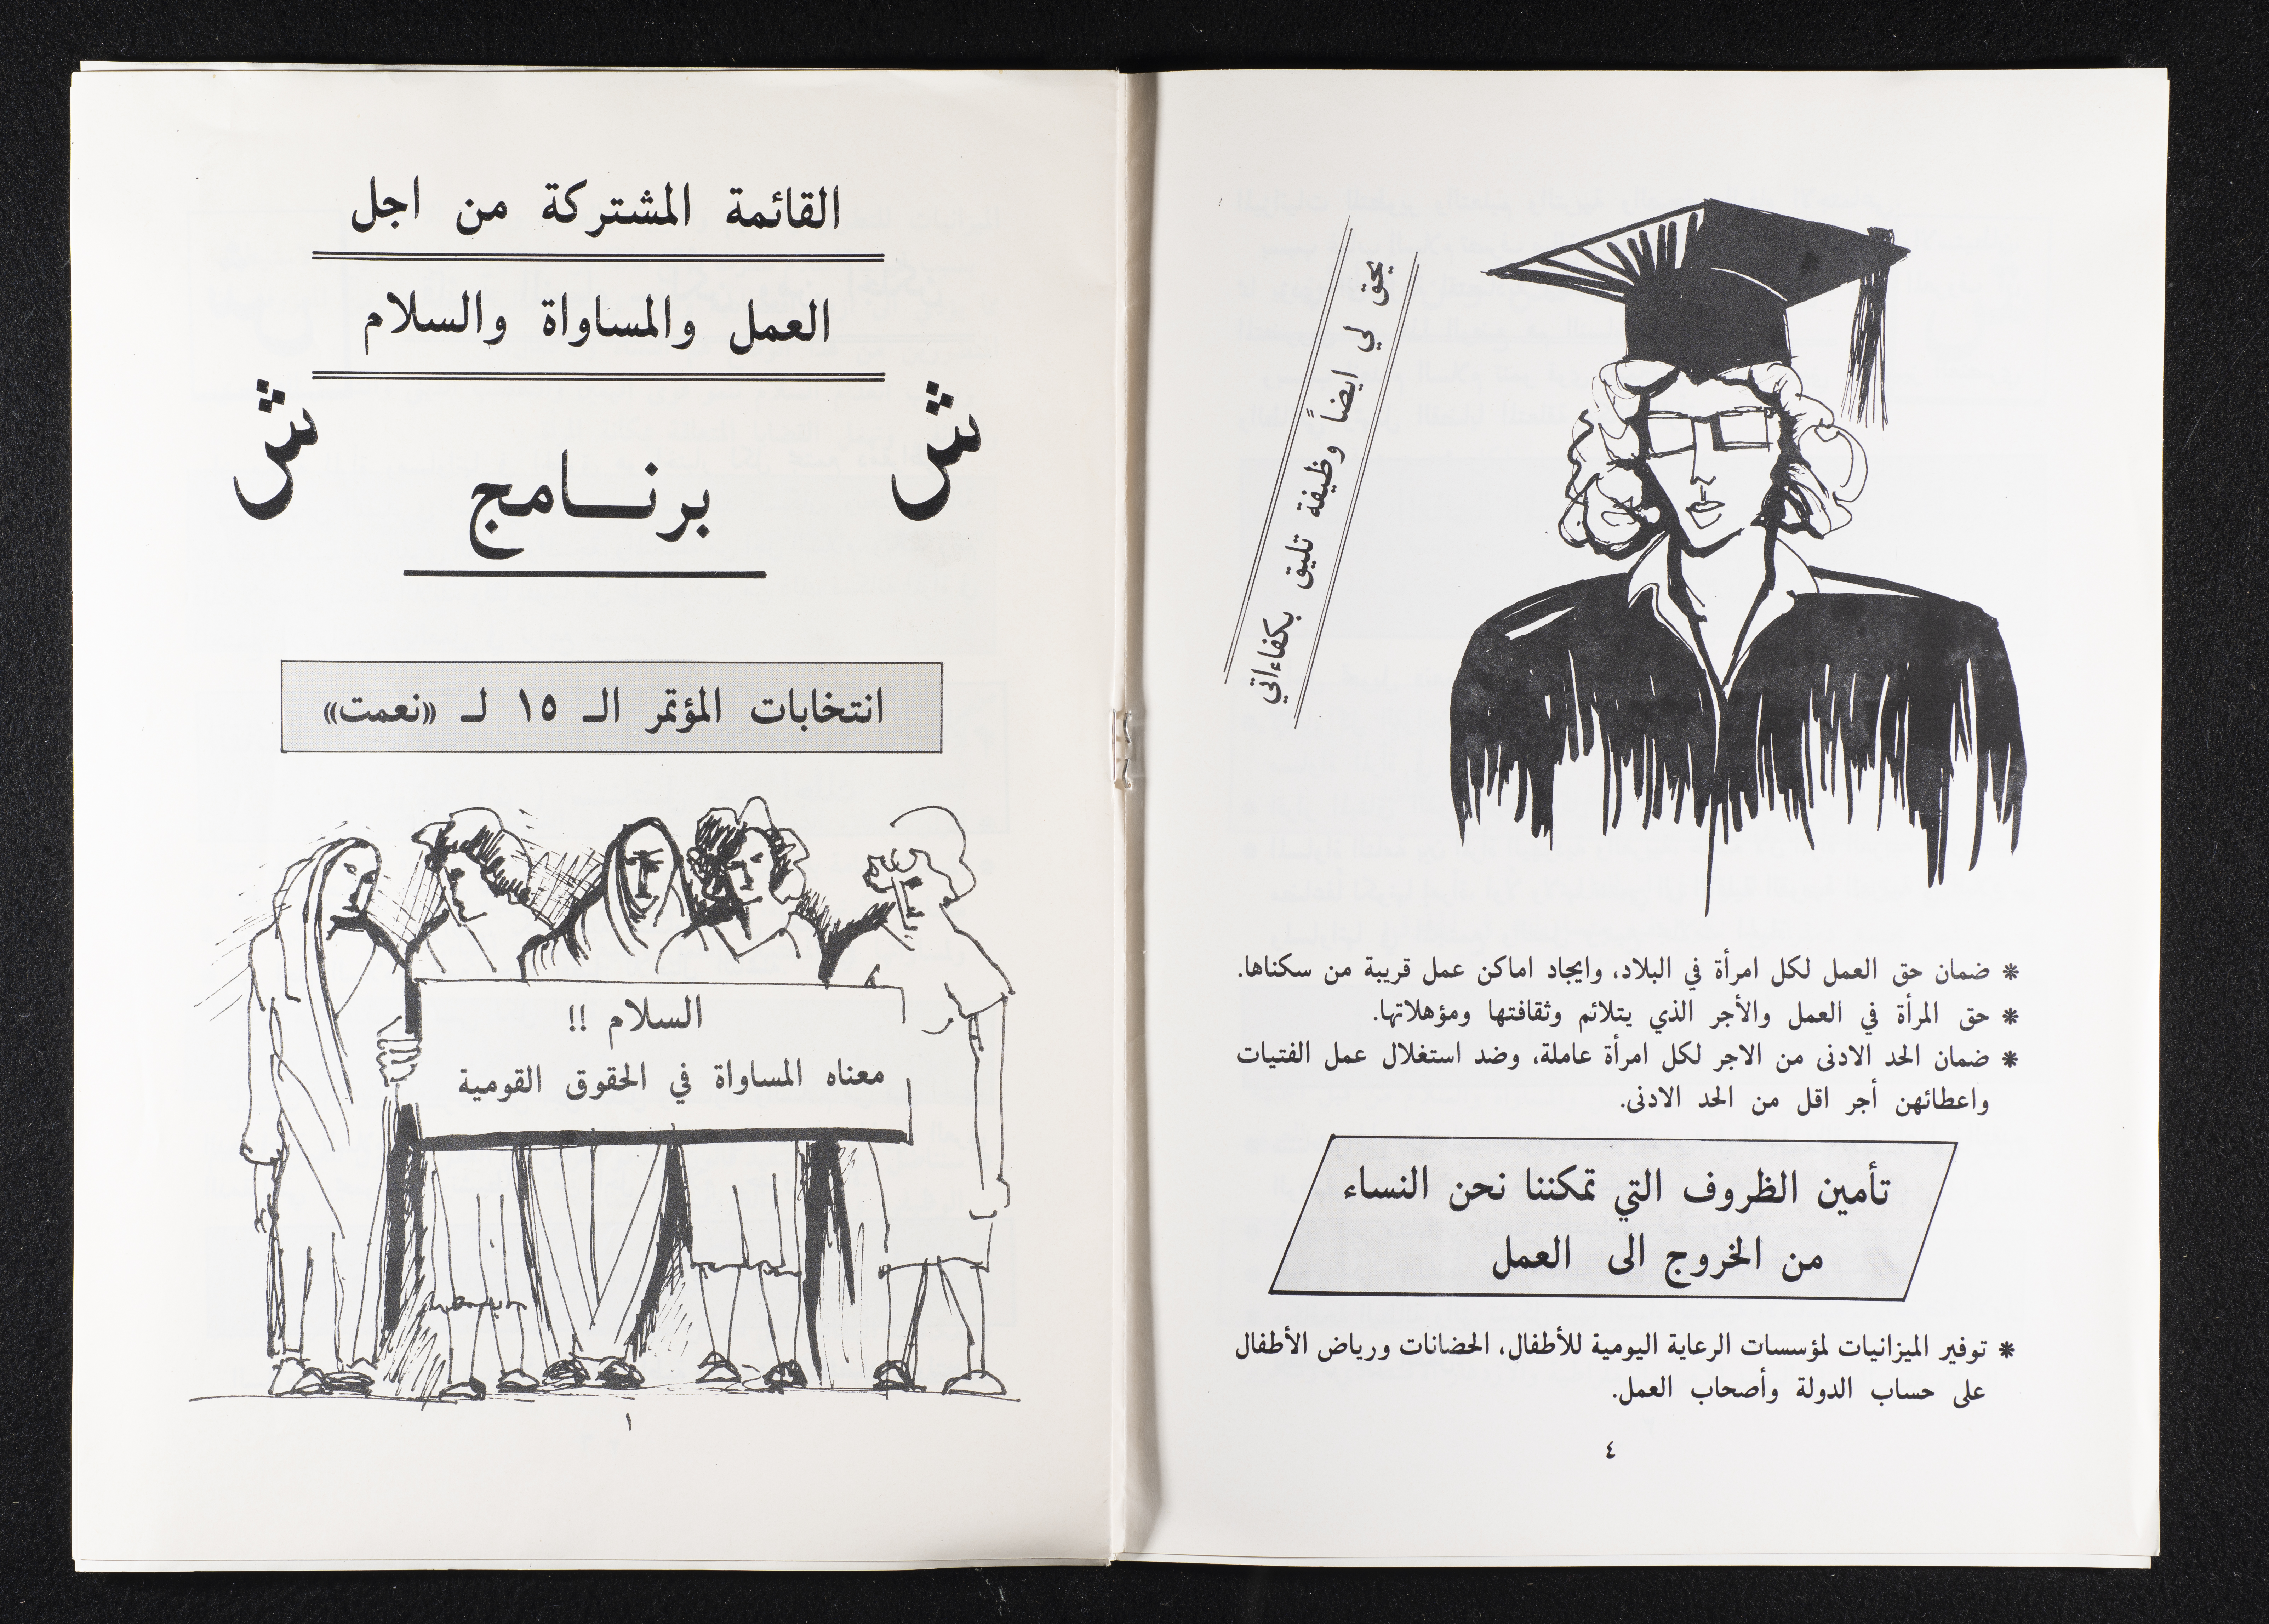 القائمة المشتركة من اجل
العمل والمساواة والسلام
ش
ش
برنـــامج
انتخابات المؤتمر الـ ١٥ لـ «نعمت»
السلام !!
معناه المساواة في الحقوق القومية
١
يحق لي ايضاً وظيفة تليق بكفاءاتي
* ضمان حق العمل لكل امرأة في البلاد، وايجاد اماكن عمل قريبة من سكناها.
* حق المرأة في العمل والأجر الذي يتلائم وثقافتها ومؤهلاتها.
* ضمان الحد الادنى من الاجر لكل امرأة عاملة، وضد استغلال عمل الفتيات
واعطائهن أجر اقل من الحد الادنى.
تأمين الظروف التي تمكننا نحن النساء
من الخروج الى العمل
* توفير الميزانيات لمؤسسات الرعاية اليومية للأطفال، الحضانات ورياض الأطفال
على حساب الدولة وأصحاب العمل.
٤